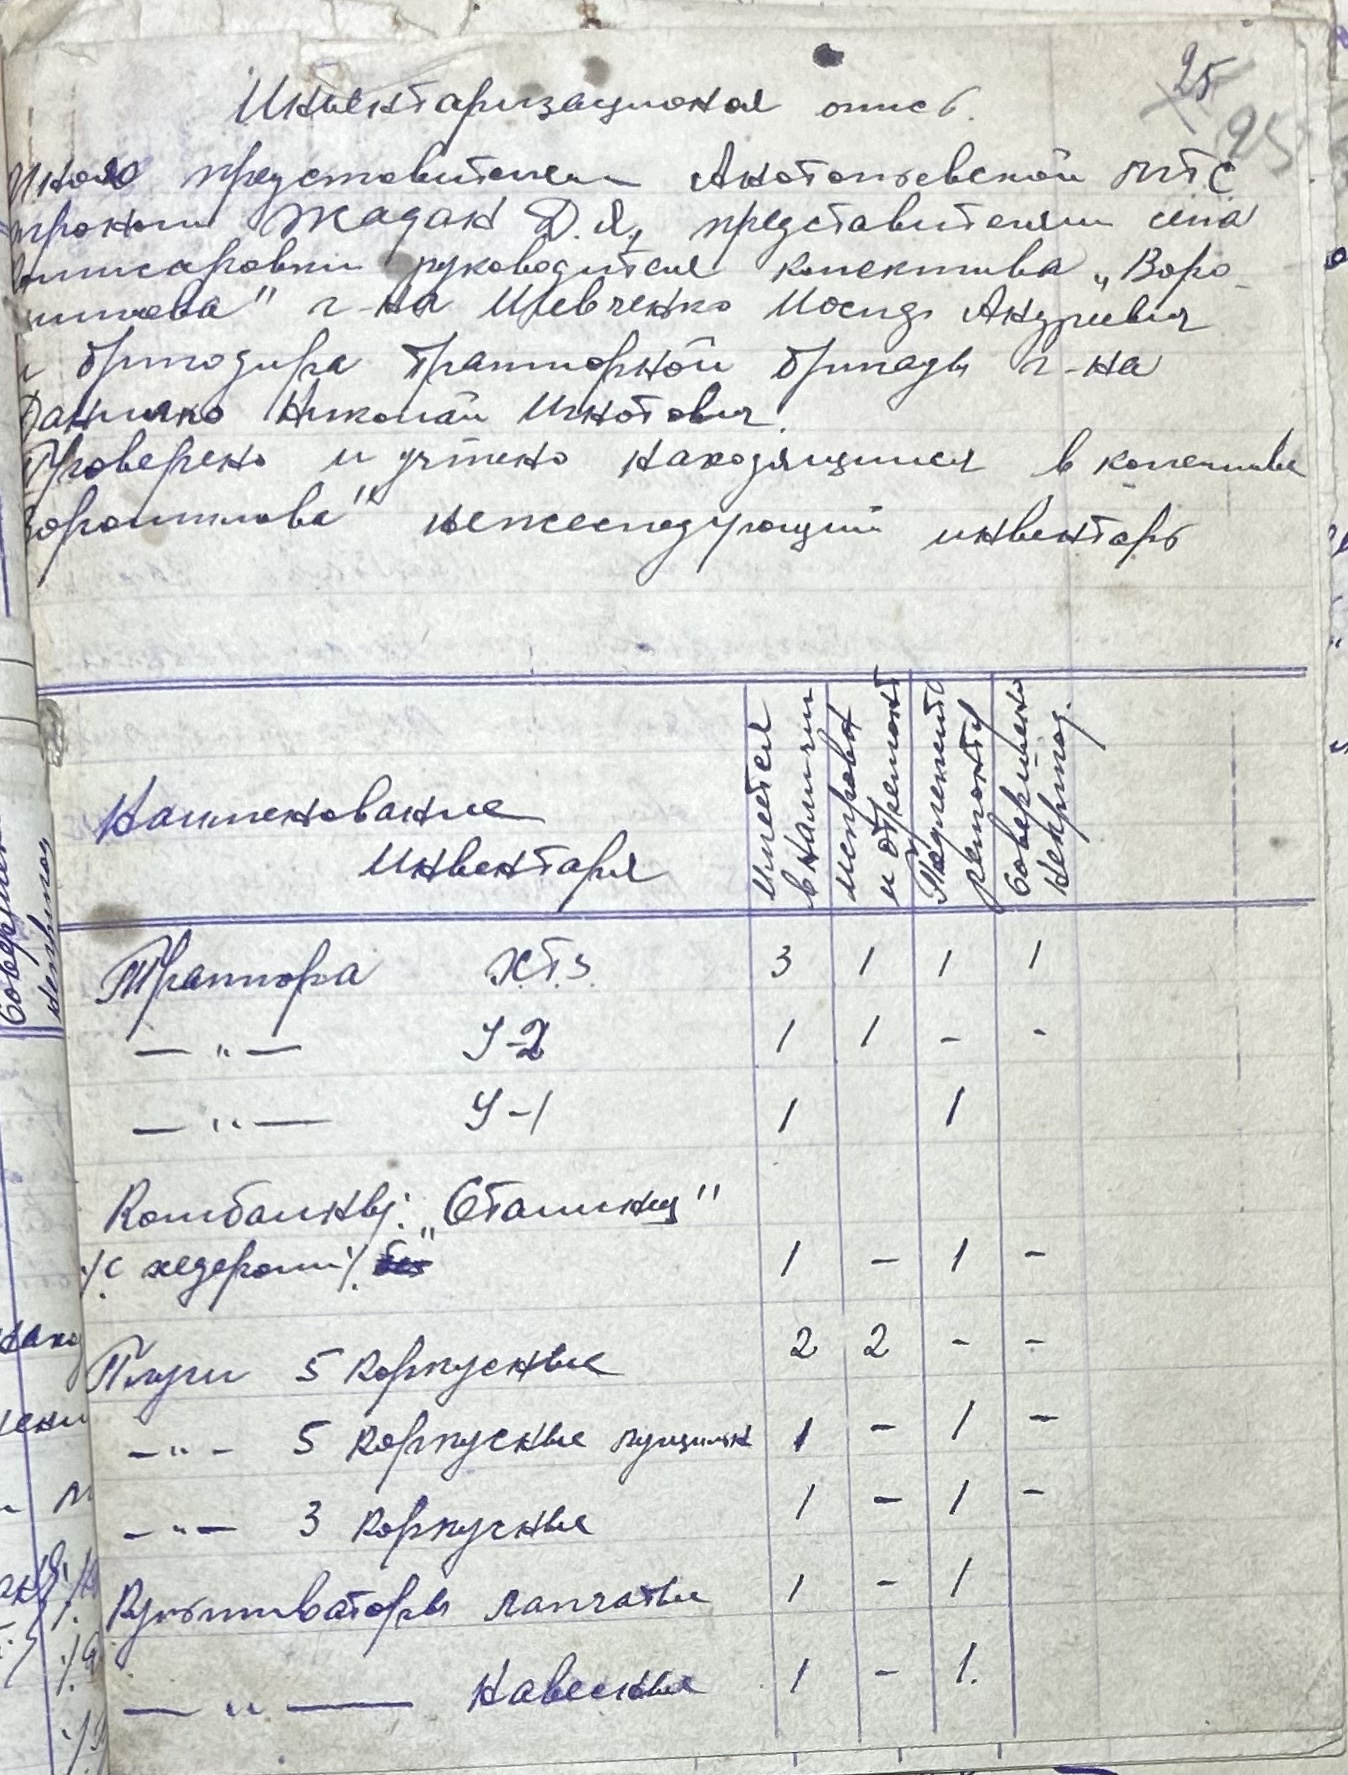 Инвентаризационая опись.
25
25
Мною представителем Анотопьевской МТС
Жадан Д.Я, представителям села
руководителя колектива „Воро-
шилова" г-на Шевченко Иосиф Андреевич
и бригадира тракторной бригады г-на
Данилко Николай Игнотович.
Проверено и учтено находящийся в колективе
Ворошилова" нежеследующий инвентарь
Наименование инвентаря
имеется в наличии
исправн и отремонт
Подлежит ремонту
Совершено непригод.
Трактора ХТЗ 3 1 1 1
— „ — У-2 1 1 - -
— „ — У-1 1 1
Комбайны: „Сталинец"
/с хедером/. 1 - 1 -
Плуги 5 корпусные 2 2 - -
— „ — 5 корпусные лущильн 1 - 1 -
— „ — 3 корпусные 1 - 1 -
Культиваторы лапчатые 1 - 1
— „ — Навесные 1 - 1.
Соверше
непригод